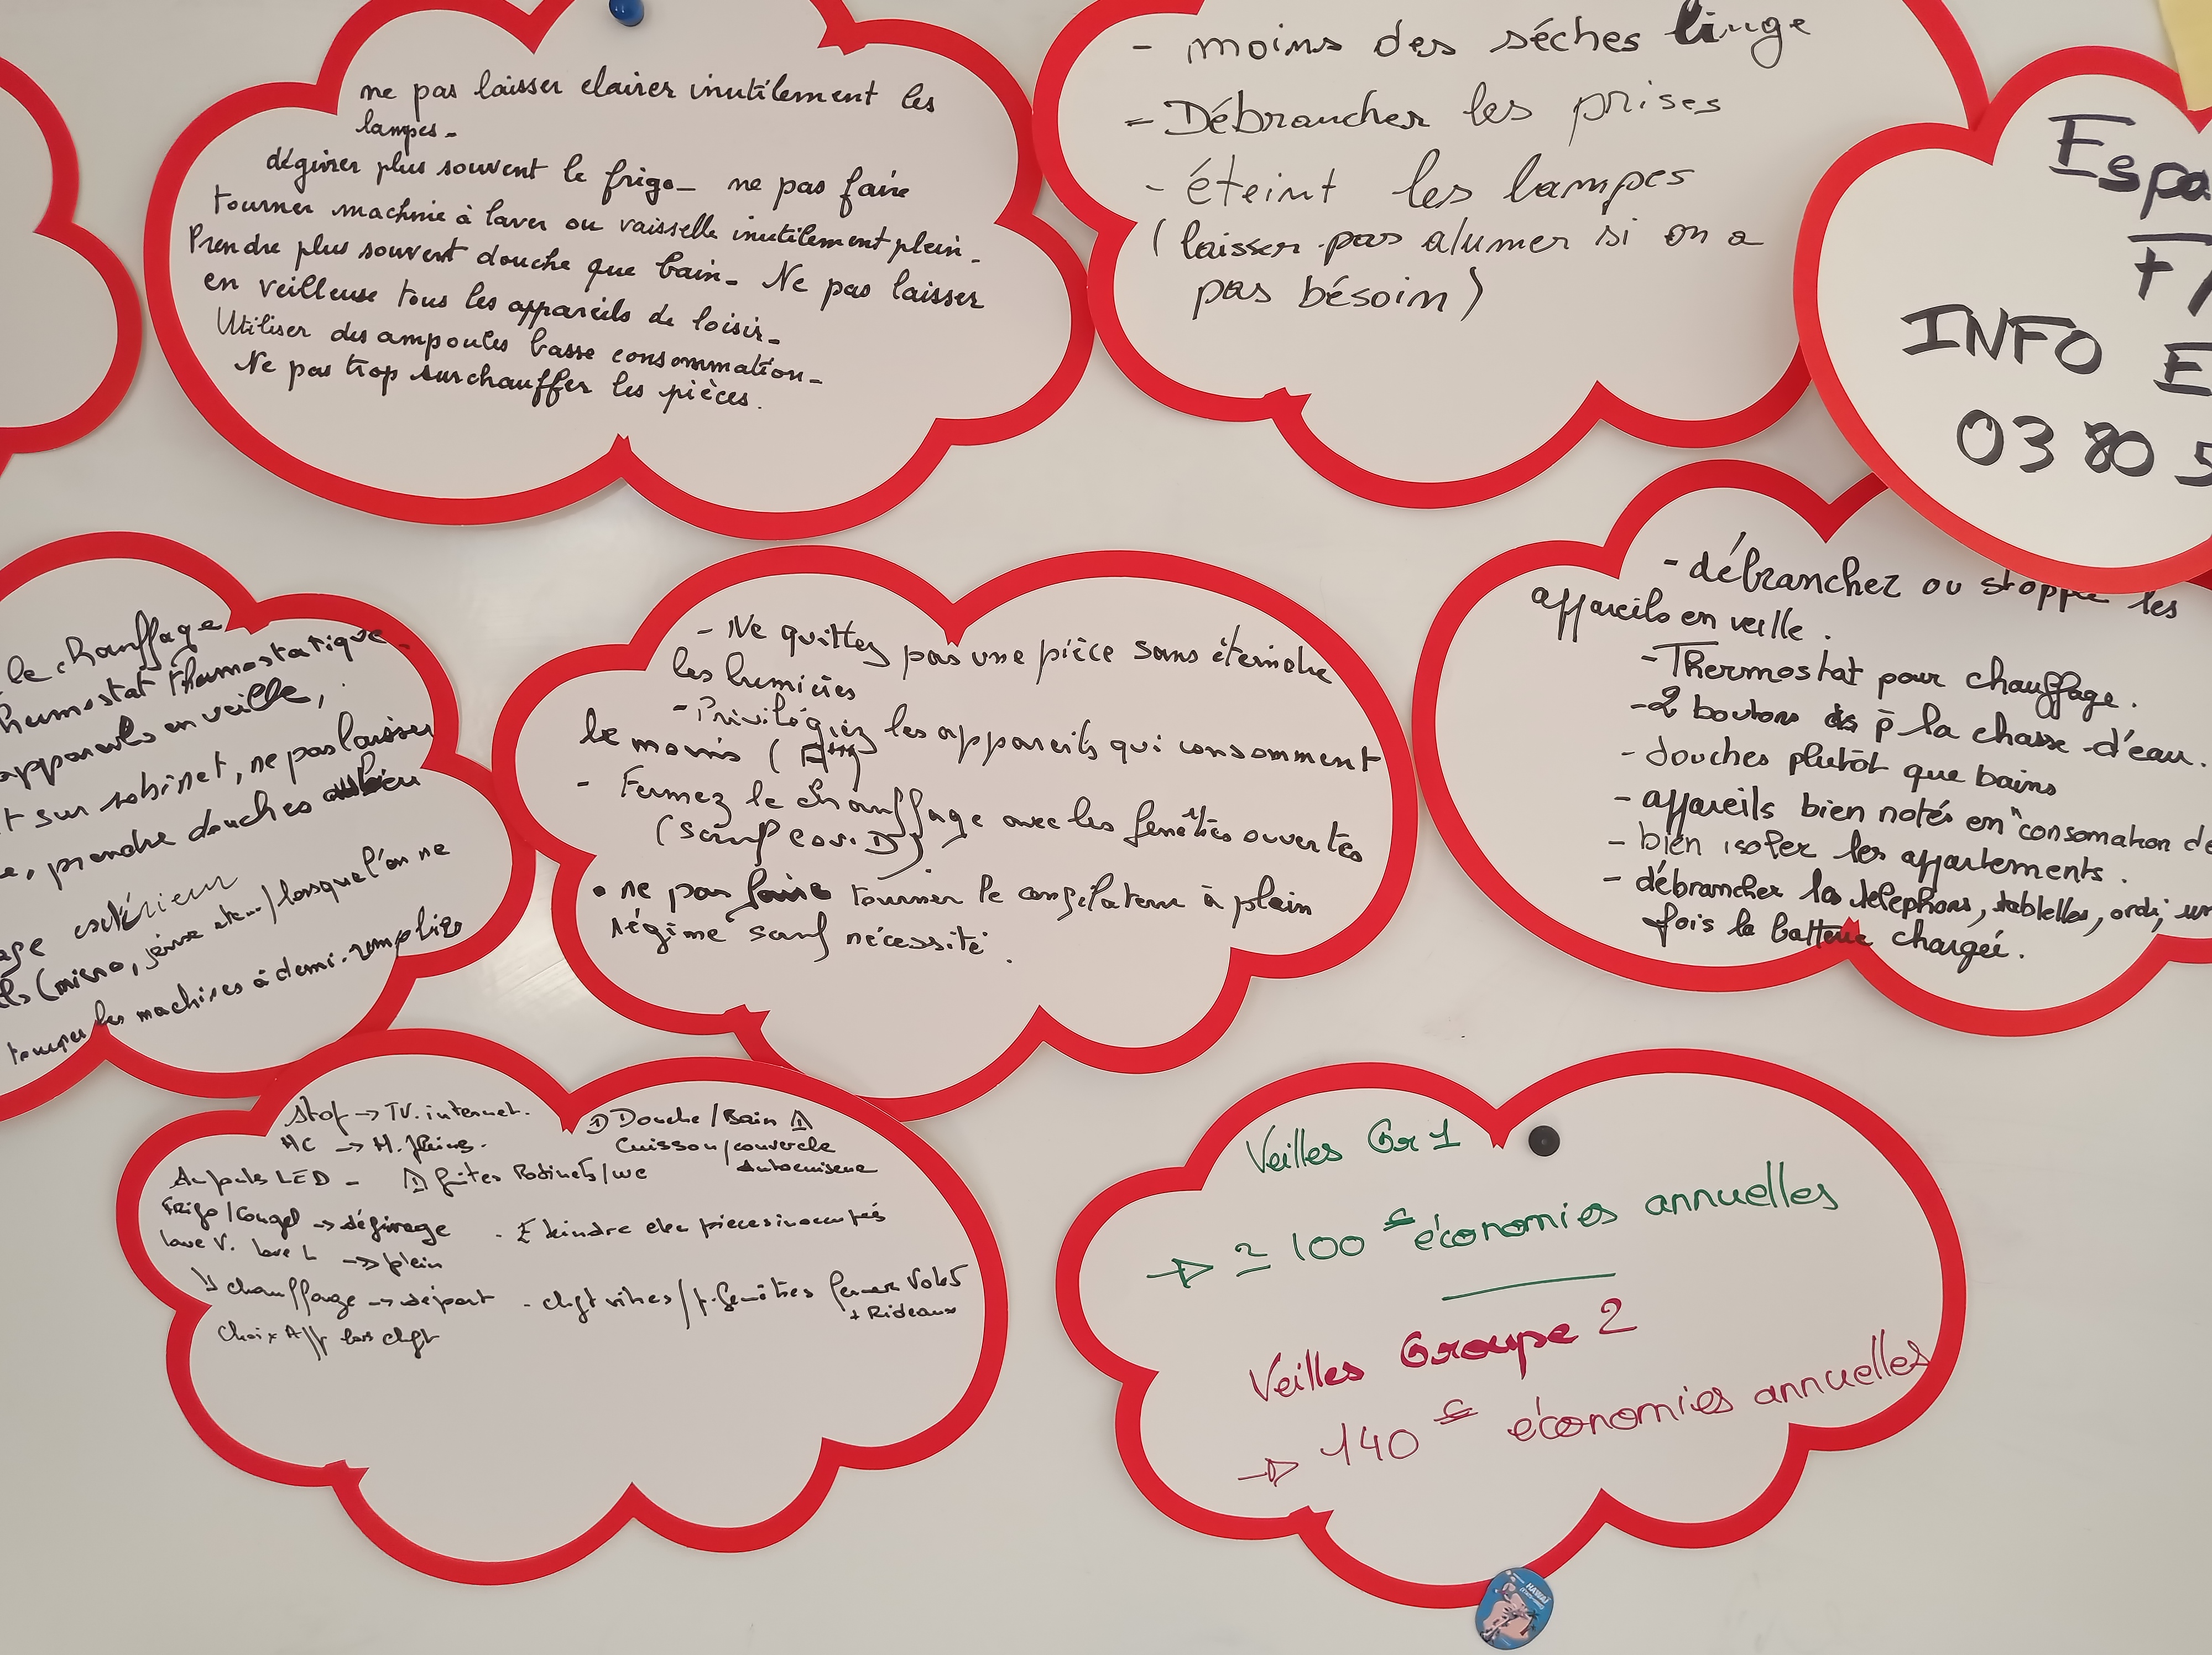 ne pas laisser elairer inutilement les
lampes -
dégivrer plus souvent le frigo - ne pas faire
tourner machine à laver ou vaisselle inutilement plein -
Prendre plus souvent douche que bain - Ne pas laisser
en veilleuse tous les appareils de loisir -
Utiliser des ampoules basse consommation -
Ne pas trop surchauffer les pièces.
- moins des séches linge
- Débrancher les prises
- éteint les lampes
( laisser pas alumer si on a
pas bésoin )
Espa
F
INFO E
03 80 5
le chauffage
hermostat thermostatique.
appareils en veille,
t sur robinet, ne pas laisser
e, prendre douches au lieu
age extérieur
ls (micro, lorsque l'on ne
les machines à demi-remplies
- Ne quittez pas une pièce sans éteindre
les lumières
- Privilégiez les appareils qui consomment
le moins ( A+++)
- Fermez le chauffage avec les fenêtres ouvertes
(sauf covid)
• ne pas faire tourner le congélateur à plein
régime sauf nécessité.
- débranchez ou stopper les
appareils en veille.
- Thermostat pour chauffage.
- 2 boutons p la chasse d'eau.
- douches plutôt que bains
- appareils bien notés en "consomation de
- bien isoler les appartements.
- débrancher les téléphons, tablelles, ordi, un
fois la batterie chargée.
stop → TV. internet.
HC → H. pleins.
Ampoule LED - fuites Robinets/wc
Frigo/Congel → dégivrage
lave V. lave L → plein
chauffage → départ
Choix App lors chgt
Douche/Bain
Cuisson/couvercle
Autocuiseur
- Eteindre elec pieces inoccupés
- chgt vitres/p. fenêtres fermer Volets
+ Rideaux
Veilles Gr 1
→ ≃ 100 € économies annuelles
Veilles Groupe 2
→ 140 € économies annuelles
HAWAÏ